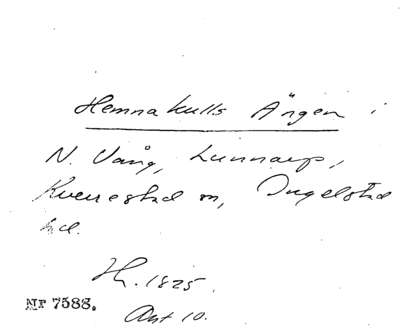 Hemnakulls Ängen i
N. Vång, Lunnarp,
Kverrestad sn, Ingelstad
hd.
H. 1825.
Nr 7588.
Akt 10.